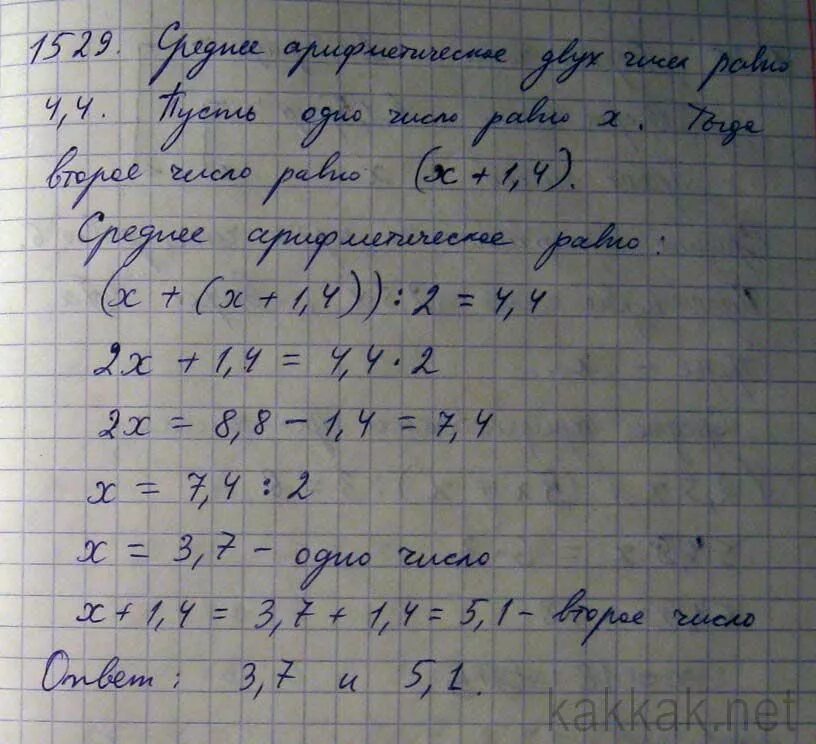 1529. Среднее арифметическое двух чисел равно
4,4. Пусть одно число равно x. Тогда
второе число равно (x + 1,4).
Среднее арифметическое равно:
(x + (x + 1,4)) : 2 = 4,4
2x + 1,4 = 4,4 · 2
2x = 8,8 - 1,4 = 7,4
x = 7,4 : 2
x = 3,7 - одно число
x + 1,4 = 3,7 + 1,4 = 5,1 - второе число
Ответ: 3,7 и 5,1.
kakkak.net